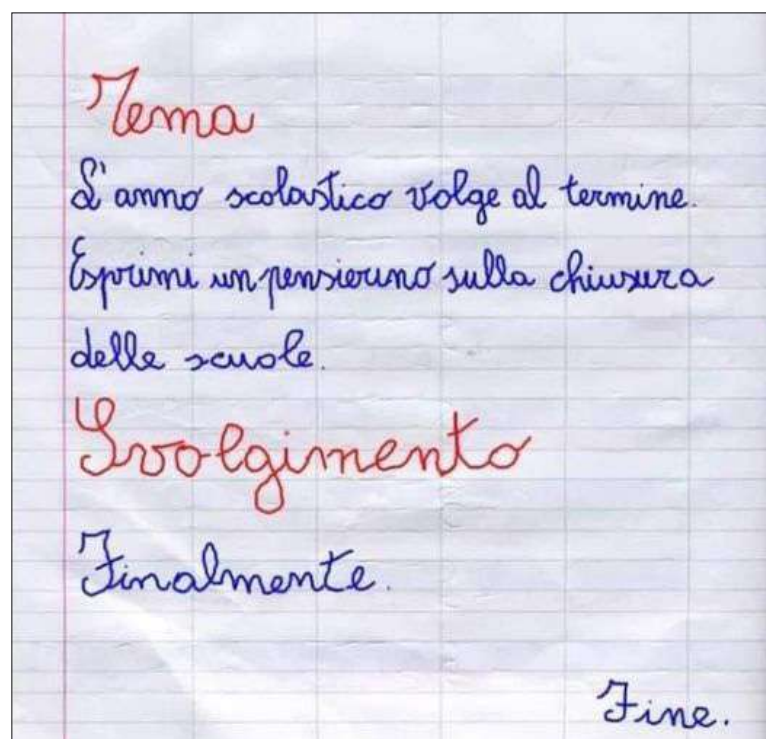 Tema
L'anno scolastico volge al termine.
Esprimi un pensierino sulla chiusura
delle scuole.
Svolgimento
Finalmente.
Fine.